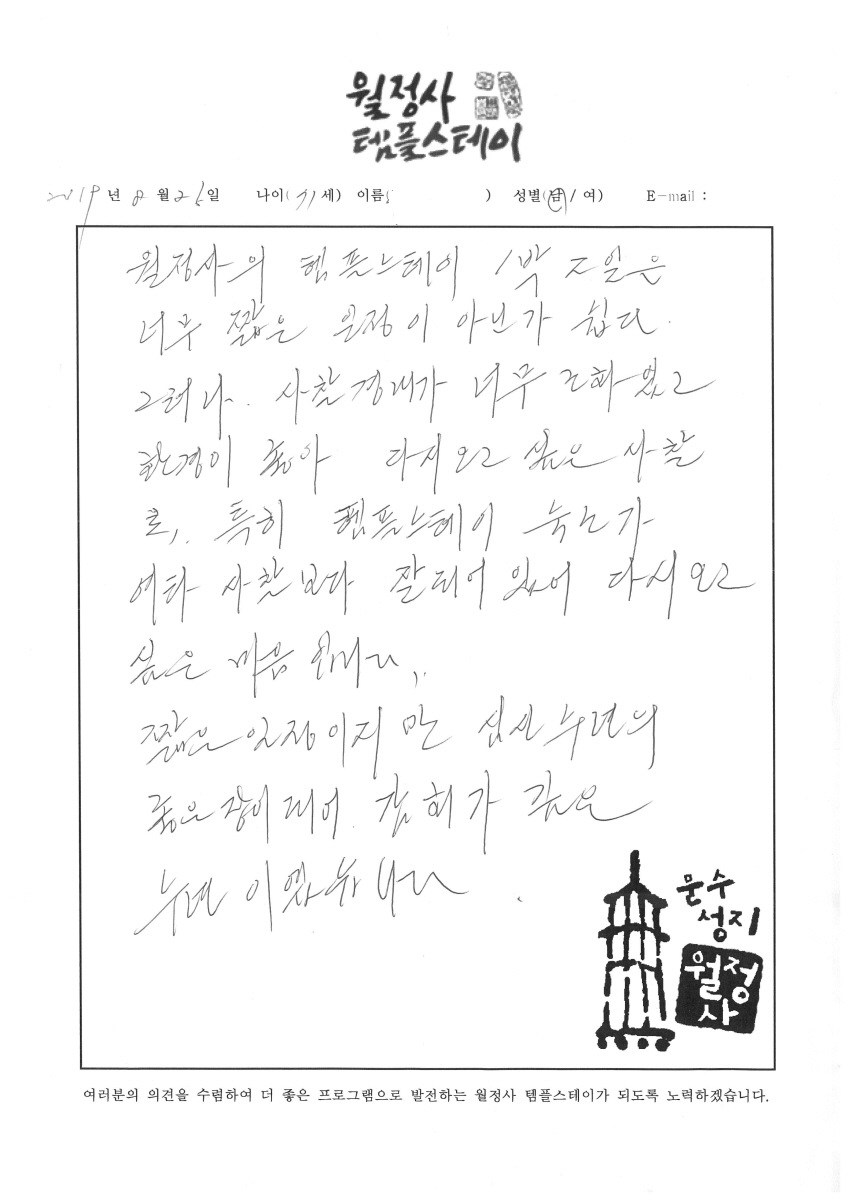 월정사
템플스테이
2019년 8월 26일 나이(71세) 이름( ) 성별(남/여) E-mail :
월정사의 템플스테이 1박 2일은
너무 짧은 일정이 아닌가 싶다.
그러나. 사찰경내가 너무 조화있고
환경이 좋아 다시 오고 싶은 사찰
로,. 특히 템플스테이 숙소가
여타 사찰보다 잘되어 있어 다시 오고
싶은 마음
짧은 일정이지만 심신수련의
좋은 장이 되어. 감회가 깊은
수련이였습니다.
문수
성지
월정
사
여러분의 의견을 수렴하여 더 좋은 프로그램으로 발전하는 월정사 템플스테이가 되도록 노력하겠습니다.